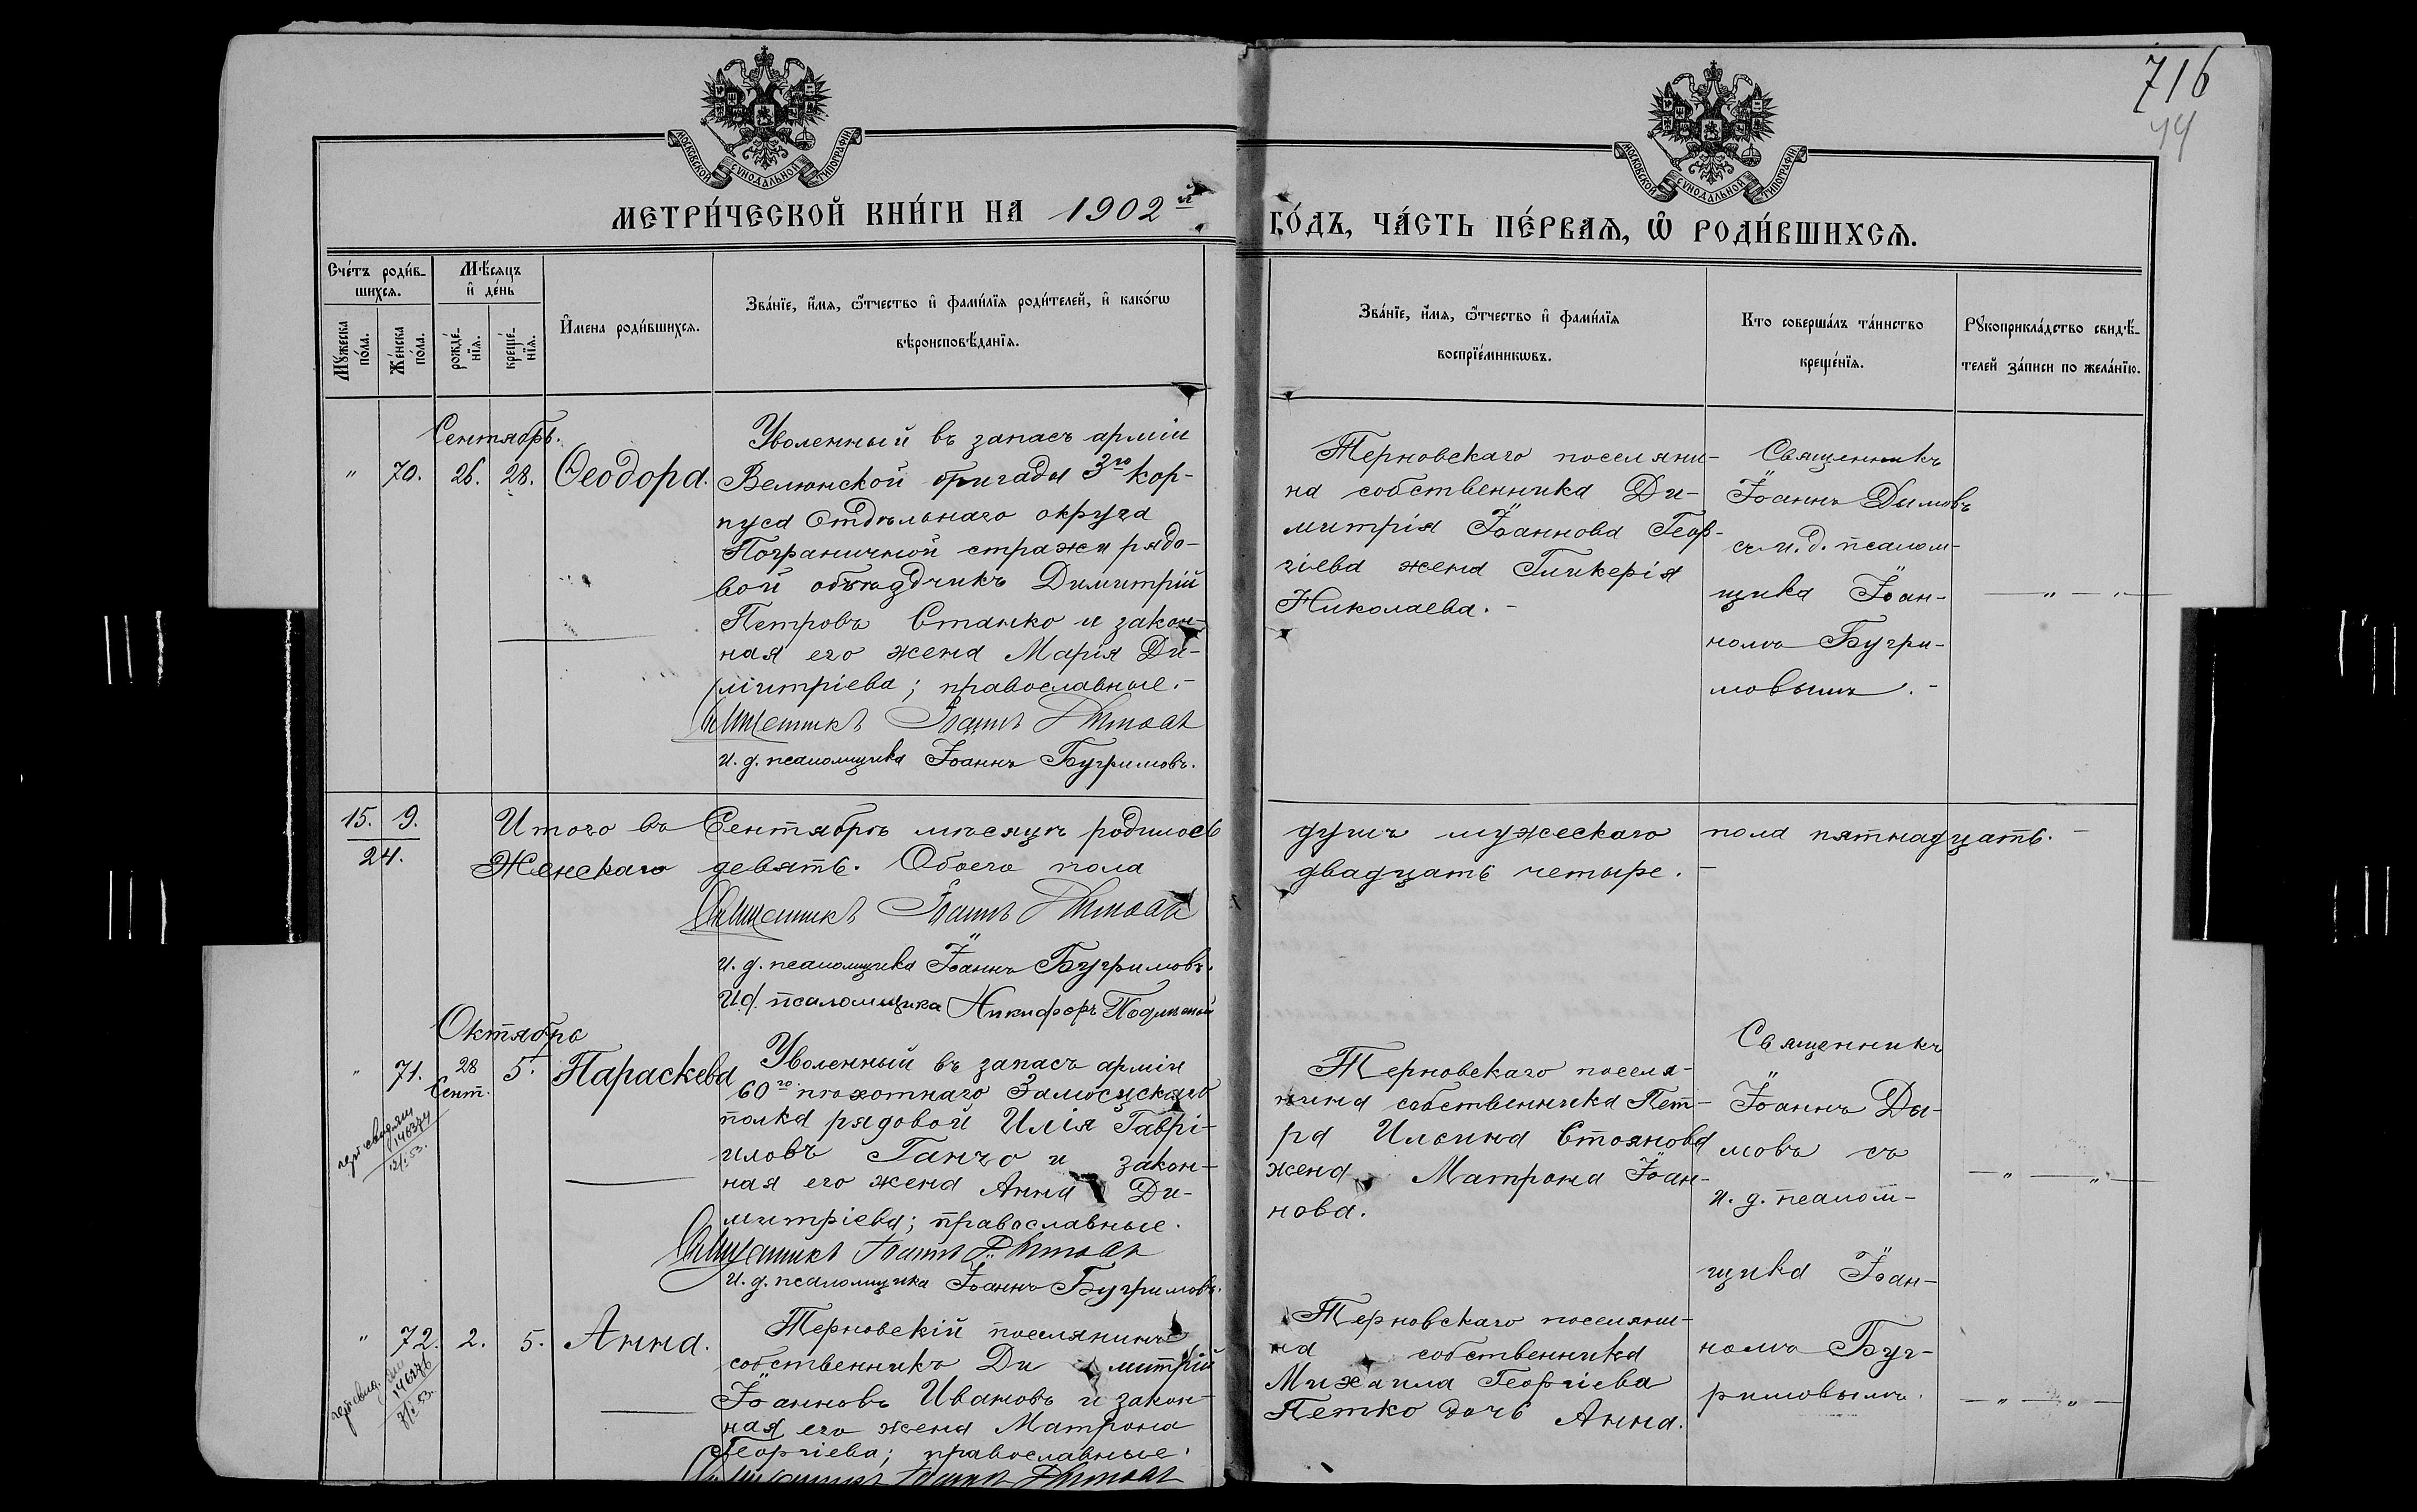 716
44
МОСКОВСКОЙ СѴНОДАЛЬНОЙ ТИПОГРАФІИ
МОСКОВСКОЙ СѴНОДАЛЬНОЙ ТИПОГРАФІИ
МЕТРИ́ЧЕСКОЙ КНИ́ГИ НА 1902 й
ГО́ДЪ, ЧА́СТЬ ПЕ́РВАѦ, Ѽ РОДИ́ВШИХСѦ.
Сче́тъ роди́в-
шихсѧ.
Мѣ́сѧцъ
и҆ де́нь
Мꙋ́жеска
по́ла.
Же́нска
по́ла.
рожде́-
нїѧ.
креще́-
нїѧ.
И҆мена роди́вшихсѧ.
Зва́нїе, и҆́мѧ, ѻ҆́тчество и҆ фами́лїѧ роди́телей, и҆ како́гѡ
вѣроисповѣ́данїѧ.
Зва́нїе, и҆́мѧ, ѻ҆́тчество и҆ фами́лїѧ
воспрїе́мникѡвъ.
Кто соверша́лъ та́инство
креще́нїѧ.
Рꙋкоприкла́дство свидѣ́-
телей за́писи по жела́нїю.
Сентябрь.
" 70. 26. 28. Ѳеодора.
Уволенный въ запасъ арміи
Велюнской бригады 3го кор-
пуса Отдѣльнаго округа
Пограничной стражи рядо-
вой объѣздчикъ Димитрій
Петровъ Станко и закон-
ная его жена Марія Ди-
митріева; православные.-
Священникъ Іоаннъ Дымовъ
и. д. псаломщика Іоаннъ Бугримовъ.
Терновскаго поселяни-
на собственника Ди-
митрія Іоаннова Геор-
гіева жена Гликерія
Николаева.-
Священникъ
Іоаннъ Дымовъ
съ и. д. псалом-
щика Іоан-
номъ Бугри-
мовымъ.-
— " — " —
15. 9.
24.
Итого въ Сентябрѣ мѣсяцѣ родилось душъ мужескаго пола пятнадцать.-
Женскаго девять. Обоего пола двадцать четыре.-
Священникъ Іоаннъ Дымовъ
и. д. псаломщика Іоаннъ Бугримовъ.
И.д. псаломщика Никифоръ
Октябрь
" 71. 28 Сент. 5. Параскева
146374
53.
Уволенный въ запасъ арміи
60го пѣхотнаго Замосцскаго
полка рядовой Илія Гаврі-
иловъ Ганчо и закон-
ная его жена Анна Ди-
митріева; православные.
Священникъ Іоаннъ Дымовъ
и. д. псаломщика Іоаннъ Бугримовъ.
Терновскаго поселя-
нина собственника Пет-
ра Ильина Стоянова
жена Матрона Іоан-
нова.
Священникъ
Іоаннъ Ды-
мовъ съ
и. д. псалом-
щика Іоан-
номъ Буг-
римовымъ.
— " — " —
" 72. 2. 5. Анна.
146376
53.
Терновскій поселянинъ
собственникъ Димитрій
Іоанновъ Ивановъ и закон-
ная его жена Матрона
Георгіева; православные.
Священникъ Іоаннъ Дымовъ
Терновскаго поселяни-
на собственника
Михаила Георгіева
Петко дочь Анна.
— " — " —